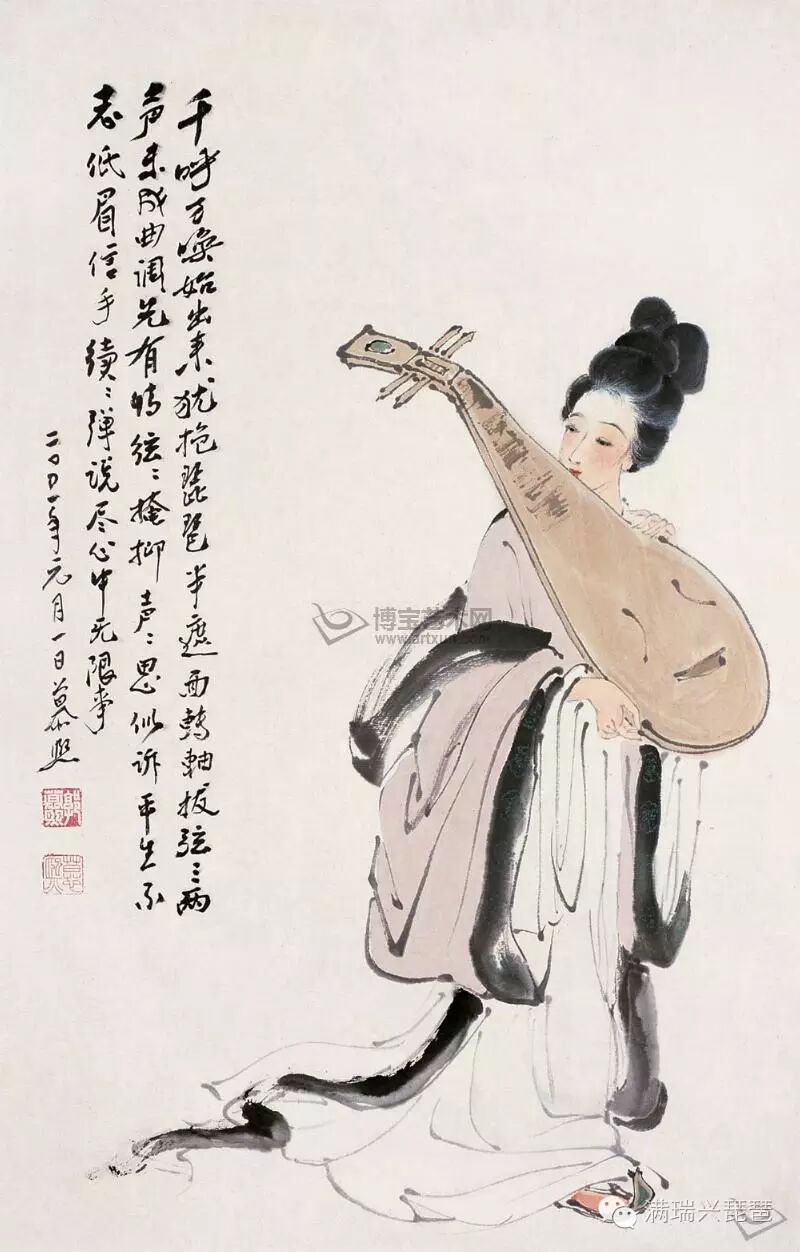 千呼万唤始出来犹抱琵琶半遮面轉軸拨弦三两
声未成曲调先有情弦〻掩抑声〻思似诉平生不
志低眉信手續〻弹说尽心中无限事
二〇〇一年元月一日慕熙
博宝艺术网
www.artxun.com
满瑞兴琵琶